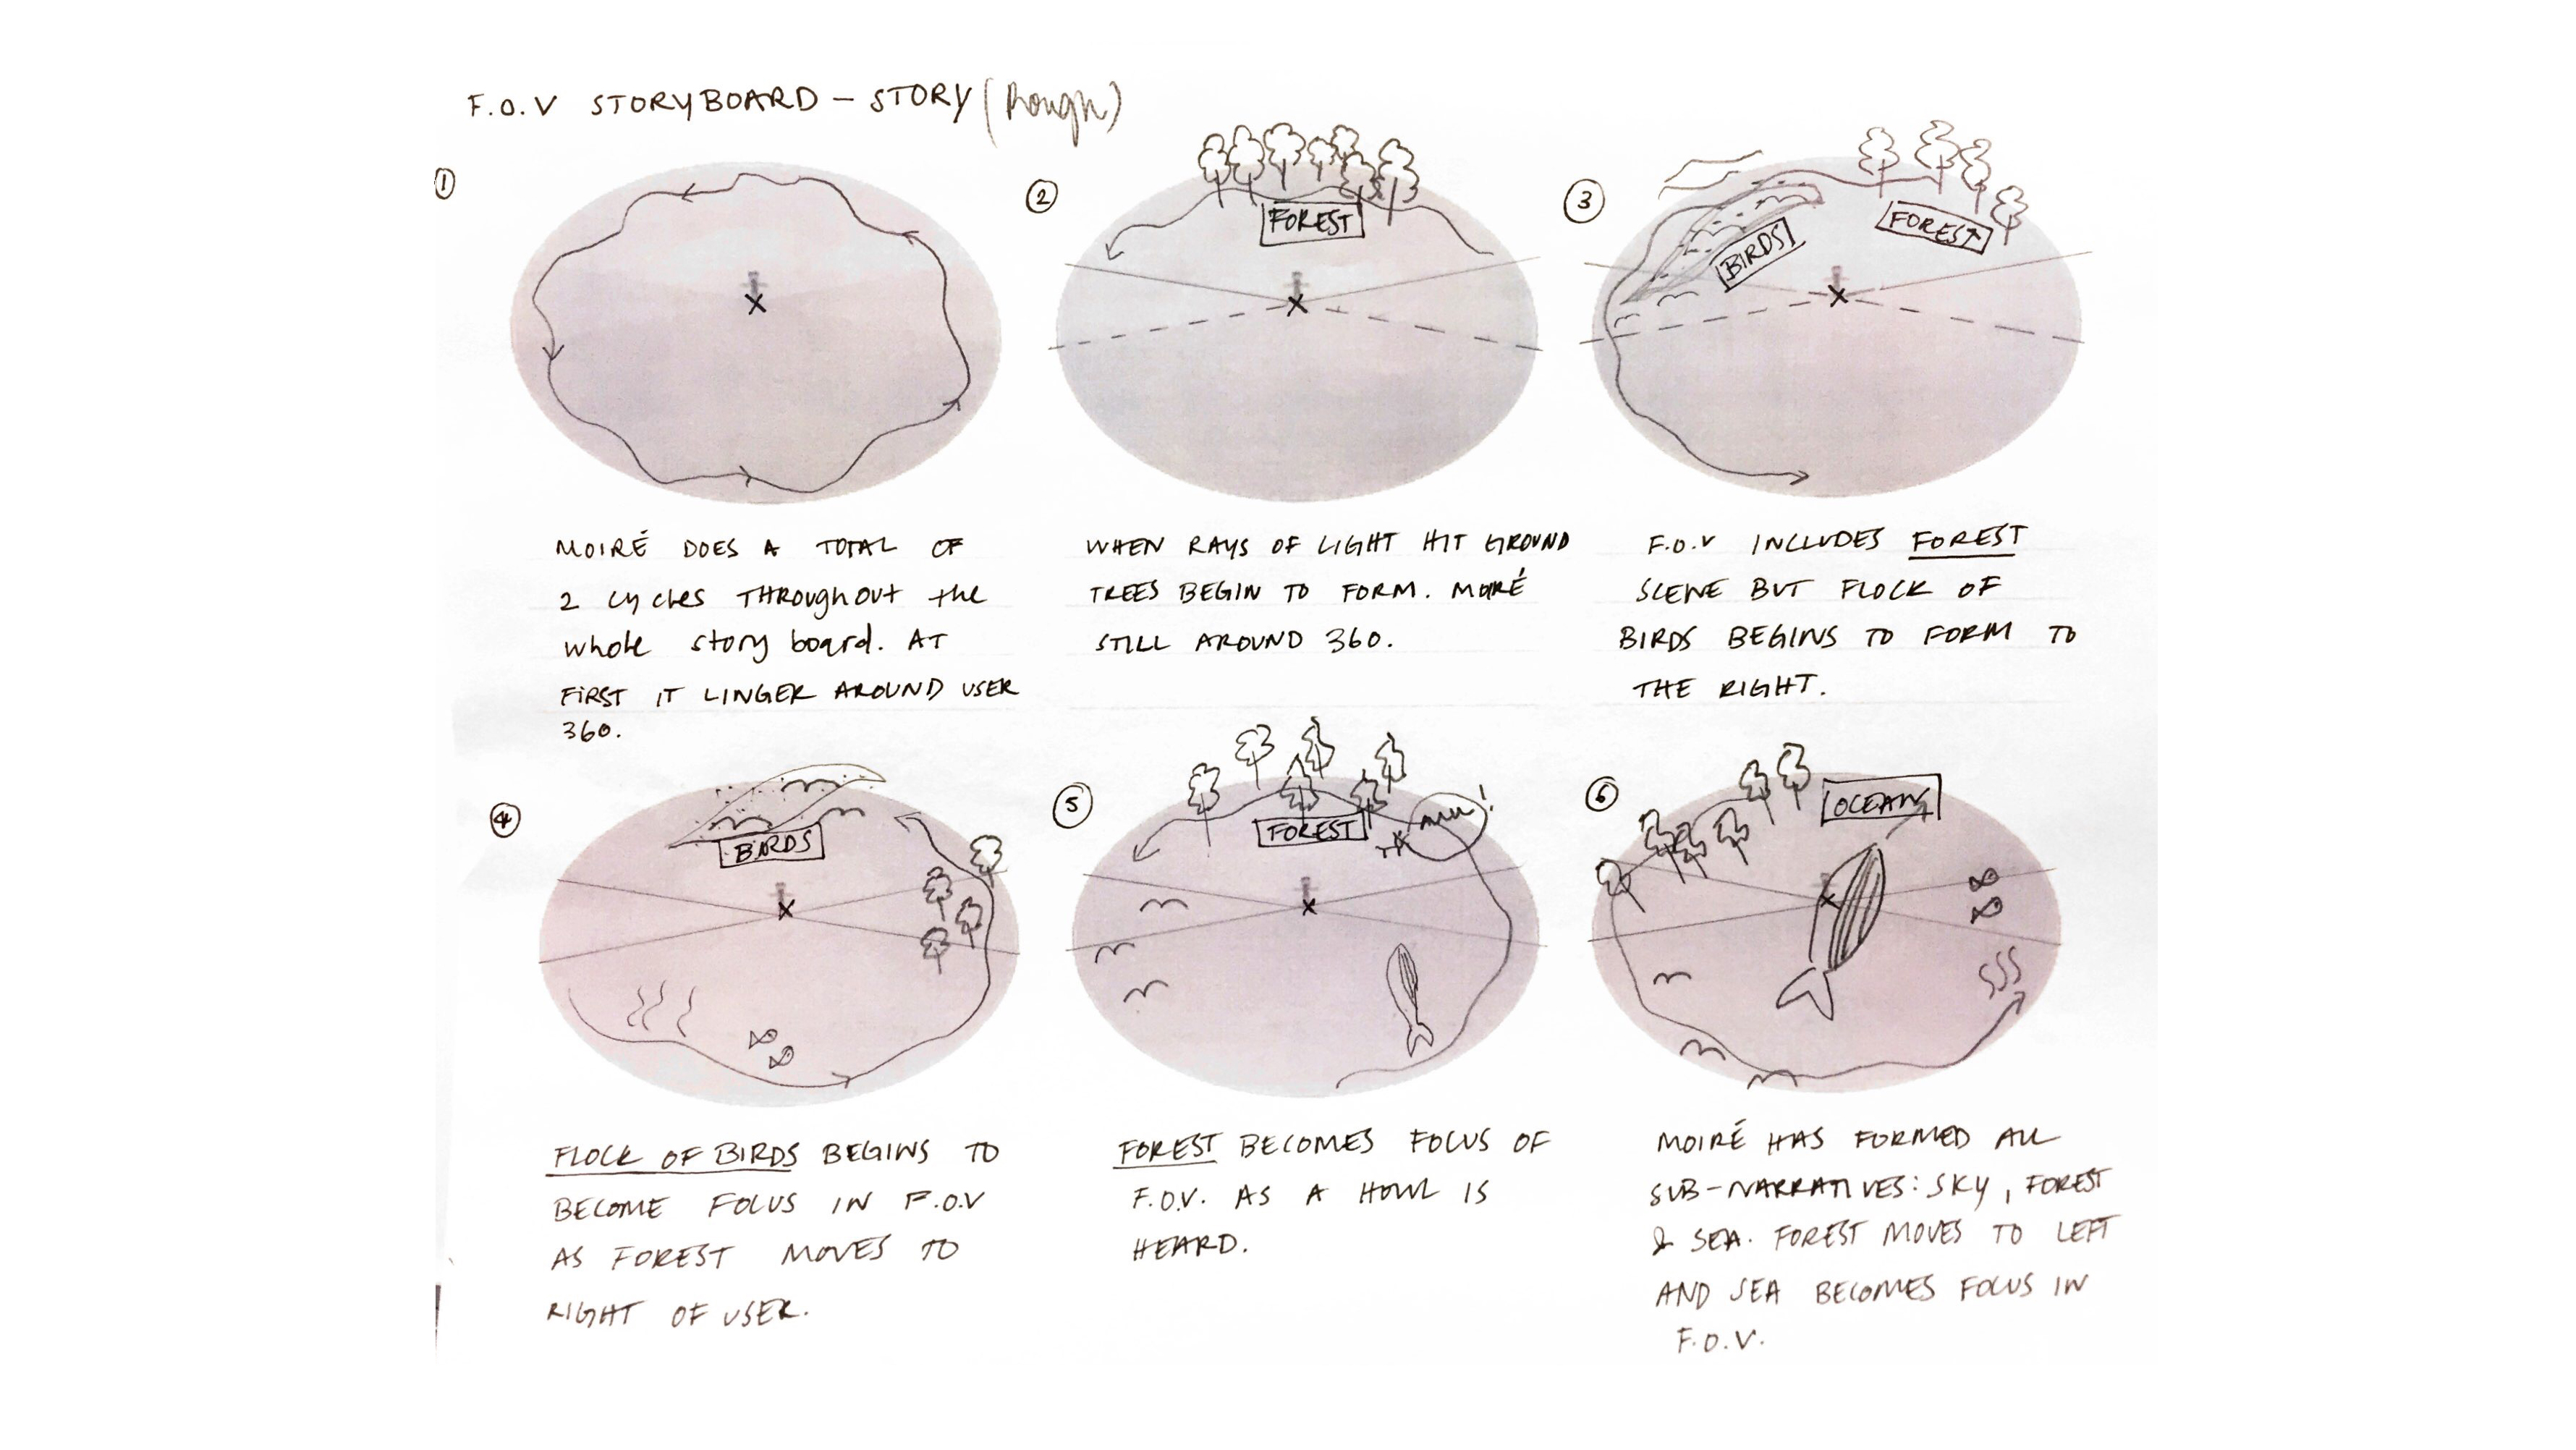 F.O.V STORYBOARD – STORY (Rough)
1
2
FOREST
3
BIRDS
FOREST
MOIRÉ DOES A TOTAL OF
2 cycles THROUGHOUT the
whole story board. AT
FIRST IT LINGER AROUND USER
360.
WHEN RAYS OF LIGHT HIT GROUND
TREES BEGIN TO FORM. MOIRÉ
STILL AROUND 360.
F.O.V INCLUDES FOREST
SCENE BUT FLOCK OF
BIRDS BEGINS TO FORM TO
THE RIGHT.
4
BIRDS
5
FOREST
6
OCEAN
FLOCK OF BIRDS BEGINS TO
BECOME FOCUS IN F.O.V
AS FOREST MOVES TO
RIGHT OF USER.
FOREST BECOMES FOCUS OF
F.O.V. AS A HOWL IS
HEARD.
MOIRÉ HAS FORMED ALL
SUB-NARRATIVES: SKY, FOREST
& SEA. FOREST MOVES TO LEFT
AND SEA BECOMES FOCUS IN
F.O.V.